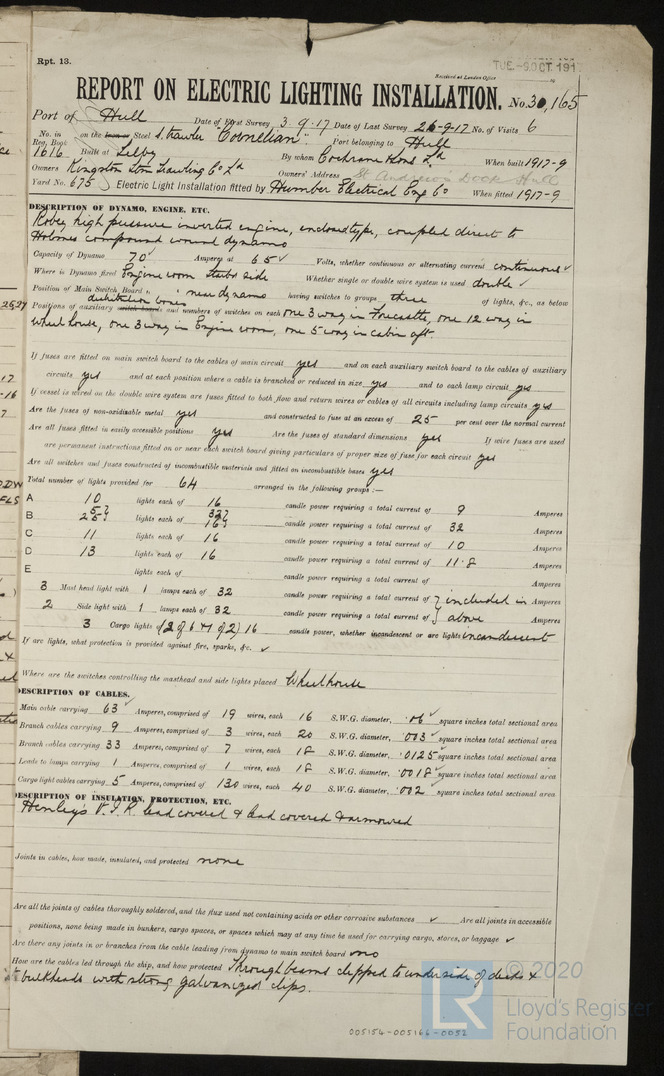 Rpt. 13.
TUE. 9 OCT. 191
Received at London Office
REPORT ON ELECTRIC LIGHTING INSTALLATION. No. 30,165
Port of Hull Date of First Survey 3.9.17 Date of Last Survey 26-9-17 No. of Visits 6
No. in Reg. Book 1616 on the Iron or Steel S. trawler "Cornelian" Port belonging to Hull
Built at Selby By whom Cochrane & Sons Ld When built 1917-9
Owners Kingston Stm Trawling Co Ld Owners' Address St Andrew's Dock Hull
Yard No. 675 Electric Light Installation fitted by Humber Electrical Eng Co When fitted 1917-9
DESCRIPTION OF DYNAMO, ENGINE, ETC.
Robey high pressure inverted engine, enclosed type, coupled direct to
Holmes compound wound dynamo
Capacity of Dynamo 70 Amperes at 65 Volts, whether continuous or alternating current continuous
Where is Dynamo fixed Engine room starbd side Whether single or double wire system is used double
Position of Main Switch Board is near dynamo having switches to groups three of lights, &c., as below
Positions of auxiliary switch boards distribution boxes and numbers of switches on each one 3 way in Forecastle, one 12 way in
wheel house, one 3 way in Engine room, one 5 way in cabin aft.
If fuses are fitted on main switch board to the cables of main circuit yes and on each auxiliary switch board to the cables of auxiliary
circuits yes and at each position where a cable is branched or reduced in size yes and to each lamp circuit yes
If vessel is wired on the double wire system are fuses fitted to both flow and return wires or cables of all circuits including lamp circuits yes
Are the fuses of non-oxidisable metal yes and constructed to fuse at an excess of 25 per cent over the normal current
Are all fuses fitted in easily accessible positions yes Are the fuses of standard dimensions yes If wire fuses are used
are permanent instructions fitted on or near each switch board giving particulars of proper size of fuse for each circuit yes
Are all switches and fuses constructed of incombustible materials and fitted on incombustible bases yes
Total number of lights provided for 64 arranged in the following groups :—
A 10 lights each of 16 candle power requiring a total current of 9 Amperes
B 5 } 25 } lights each of 32 } 16 } candle power requiring a total current of 32 Amperes
C 11 lights each of 16 candle power requiring a total current of 10 Amperes
D 13 lights each of 16 candle power requiring a total current of 11.8 Amperes
E lights each of candle power requiring a total current of Amperes
3 Mast head light with 1 lamps each of 32 candle power requiring a total current of } included in Amperes
2 Side light with 1 lamps each of 32 candle power requiring a total current of } above Amperes
3 Cargo lights of (2 of 6 & 1 of 2) 16 candle power, whether incandescent or arc lights incandescent
If arc lights, what protection is provided against fire, sparks, &c. ✓
Where are the switches controlling the masthead and side lights placed Wheelhouse
DESCRIPTION OF CABLES.
Main cable carrying 63 Amperes, comprised of 19 wires, each 16 S.W.G. diameter, .06 square inches total sectional area
Branch cables carrying 9 Amperes, comprised of 3 wires, each 20 S.W.G. diameter, .003 square inches total sectional area
Branch cables carrying 33 Amperes, comprised of 7 wires, each 18 S.W.G. diameter, .0125 square inches total sectional area
Leads to lamps carrying 1 Amperes, comprised of 1 wires, each 18 S.W.G. diameter, .0018 square inches total sectional area
Cargo light cables carrying 5 Amperes, comprised of 130 wires, each 40 S.W.G. diameter, .002 square inches total sectional area
DESCRIPTION OF INSULATION, PROTECTION, ETC.
Henleys V.I.R. lead covered & lead covered & armoured
Joints in cables, how made, insulated, and protected none
Are all the joints of cables thoroughly soldered, and the flux used not containing acids or other corrosive substances ✓ Are all joints in accessible
positions, none being made in bunkers, cargo spaces, or spaces which may at any time be used for carrying cargo, stores, or baggage ✓
Are there any joints in or branches from the cable leading from dynamo to main switch board no
How are the cables led through the ship, and how protected Through beams clipped to underside of decks &
to bulkheads with strong galvanized clips.
© 2020
LR
Lloyd's Register
Foundation
005154-005166-0052